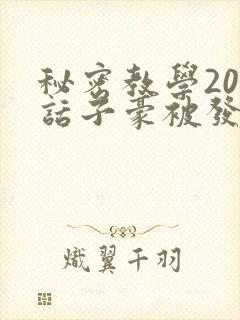 秘密教學20
話子豪被發
熾翼千羽